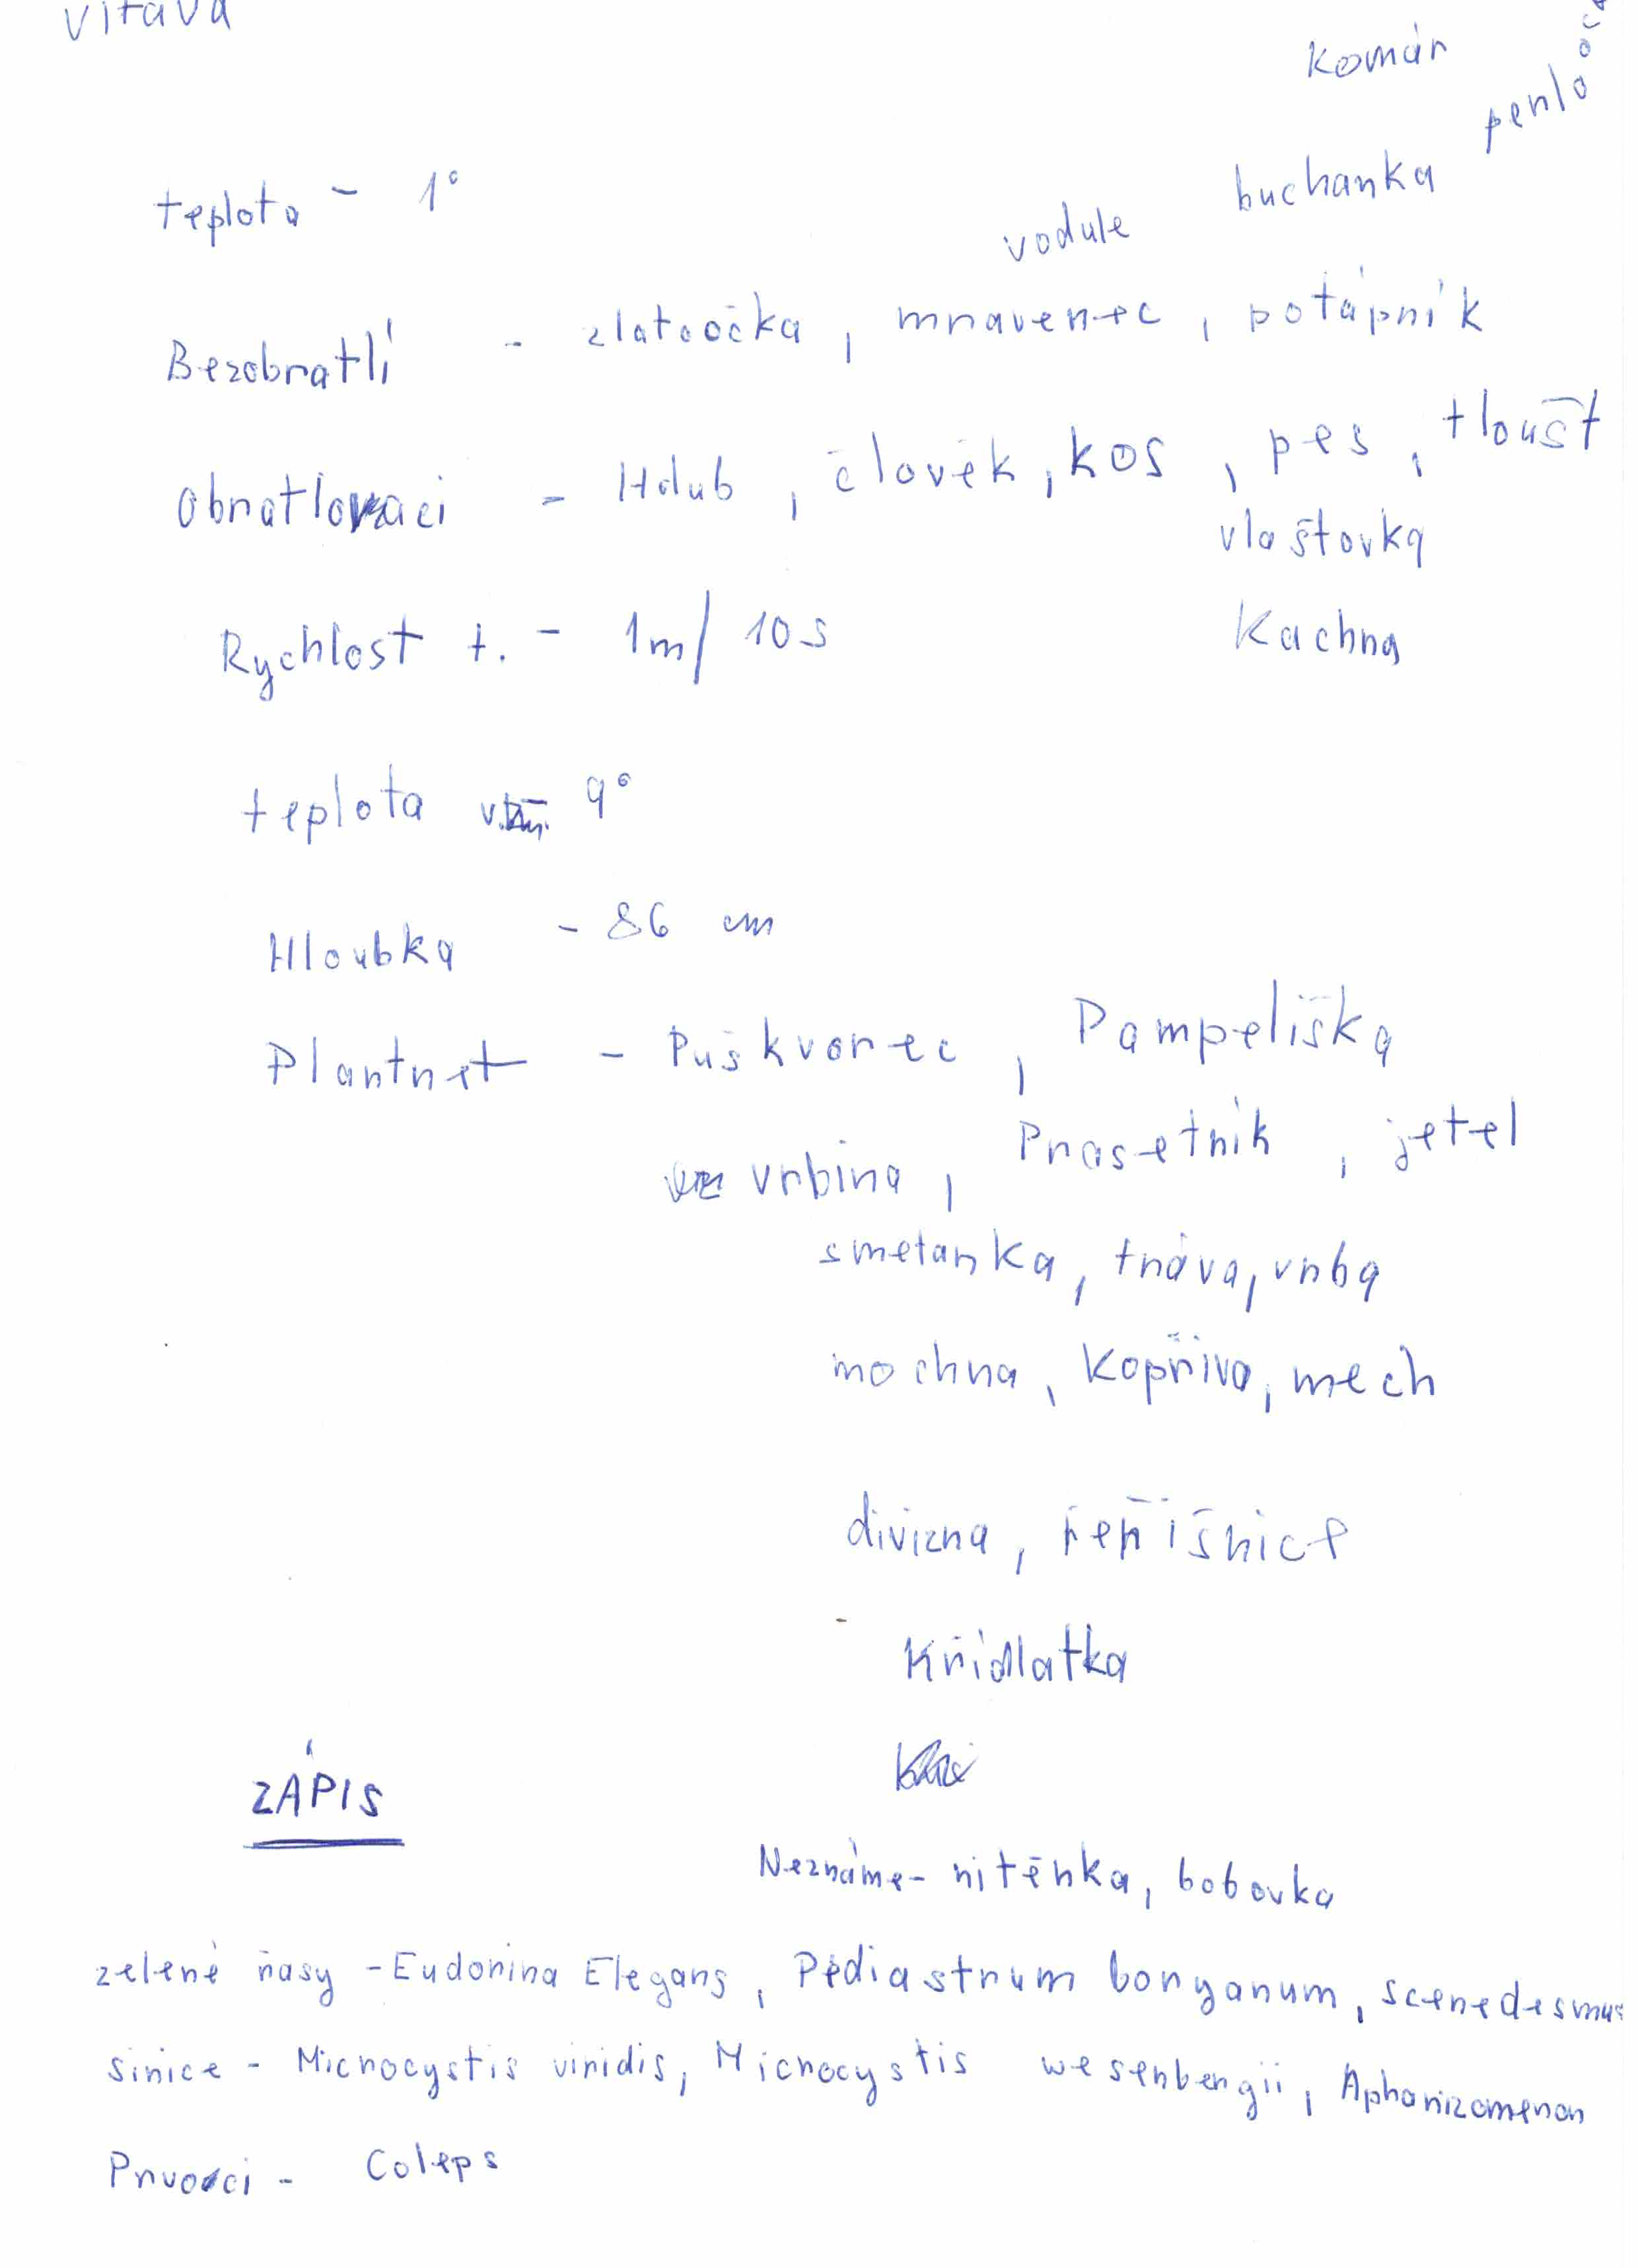 Vltava
komár
perloo
buchanka
vodule
teplota - 1°
Bezobratlí - zlatoočka, mravenec, potápník
Obratlovaci - Holub, člověk, kos, pes, tloušt
vlaštovka
Rychlost t. - 1m/ 10s
Kachna
teplota 9°
Hloubka - 86 cm
Plantnet - Puškvorec, Pampeliška
vrbina, Prasetník, jetel
smetanka, tráva, vrba
mochna, kopřiva, mech
divizna, řeřišnice
Křídlatka
ZÁPIS
Neznámé - nitěnka, bobovka
zelené řasy - Eudorina Elegans, Pediastrum boryanum, scenedesmus
sinice - Microcystis viridis, Microcystis wesenbergii, Aphanizomenon
Prvoci - Coleps